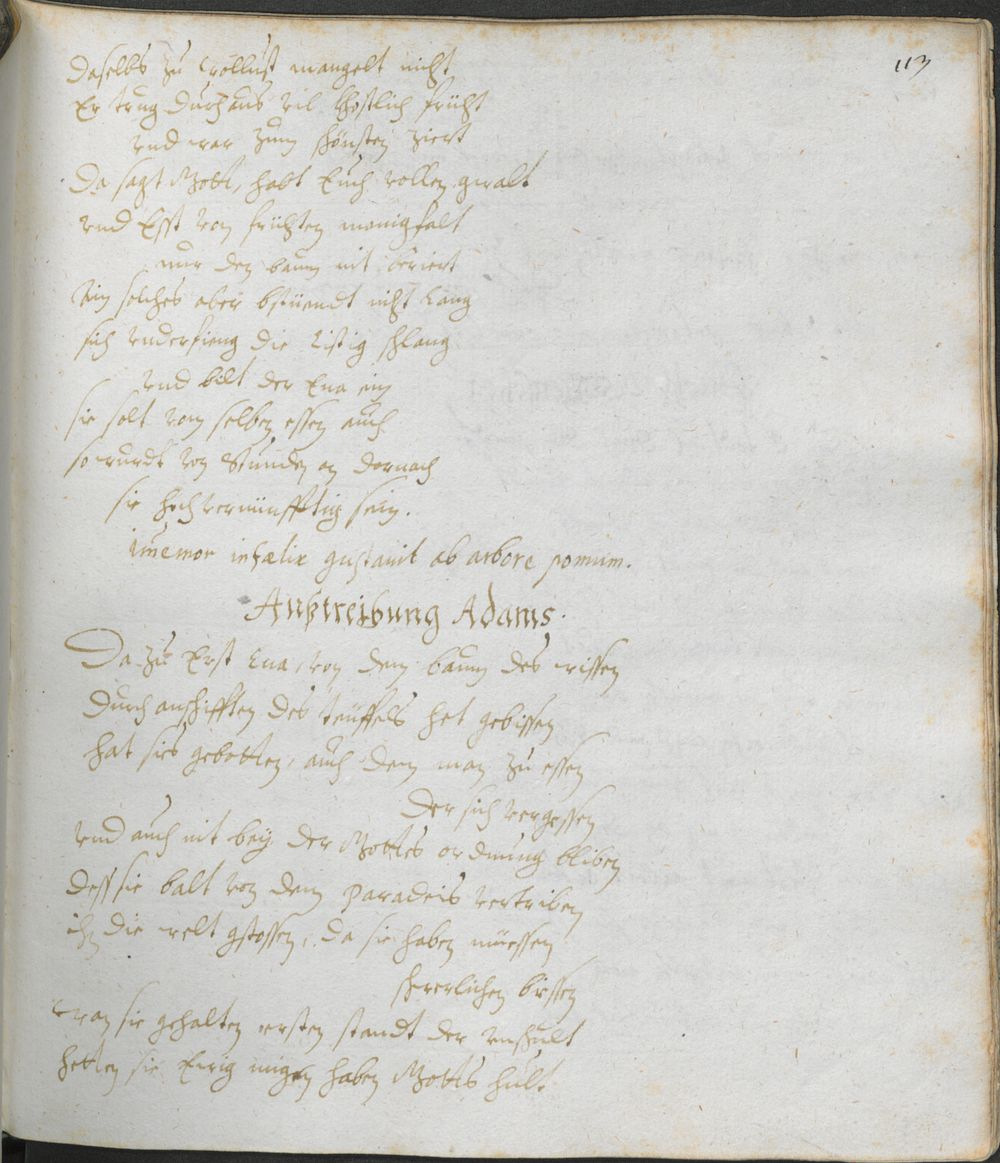 113
daselbs zu wollust mangelt nicht
Er trug durchaus vil khostlich frücht
vnd war zum schönsten ziert
Da sagt Gott, habt Euch vollen gwalt
vnd Esst von früchten manigfalt
nur den baum nit beriert
Ein solches aber bstüendt nicht lang
sich vnderfieng die listig schlang
vnd bilt der Eua ein
sie solt vom selben essen auch
so wurdt von Stunden an darnach
sie hochvernünfftig sein.
Immemor infælix gustauit ab arbore pomum.
Außtreibung Adams.
Da zu Erst Eua, von dem baum des wissen
durch anschifften des teüffels het gebissen
hat sies gebotten, auch dem man zu essen
der sich vergessen
vnd auch nit bey der Gottes ordnung bliben
dess sie balt von dem paradeis vertriben
in die welt gstossen, da sie haben müessen
schwerlichen büssen
wan sie gehalten ersten standt der vnschult
hetten sie Ewig mügen haben Gotts hult